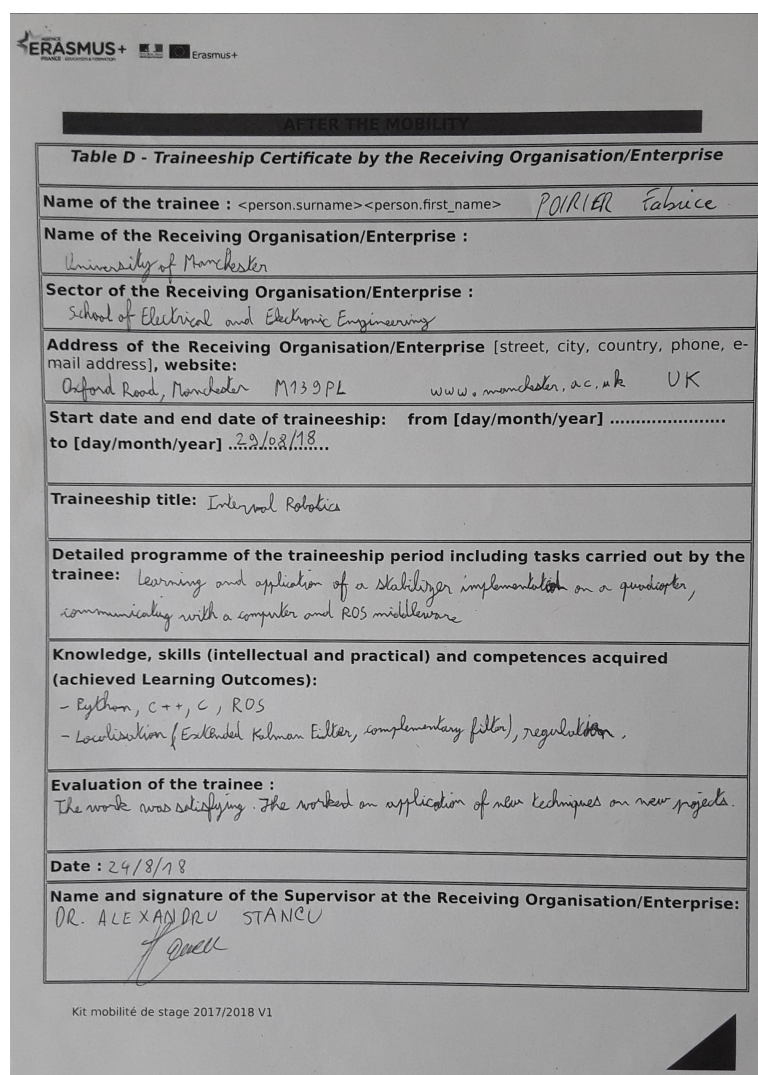 AGENCE
ERASMUS+
FRANCE ÉDUCATION & FORMATION
Erasmus+
AFTER THE MOBILITY
Table D - Traineeship Certificate by the Receiving Organisation/Enterprise
Name of the trainee : <person.surname><person.first_name> POIRIER Fabrice
Name of the Receiving Organisation/Enterprise :
University of Manchester
Sector of the Receiving Organisation/Enterprise :
School of Electrical and Electronic Engineering
Address of the Receiving Organisation/Enterprise [street, city, country, phone, e-
mail address], website:
Oxford Road, Manchester M139PL www.manchester.ac.uk UK
Start date and end date of traineeship: from [day/month/year] ........................
to [day/month/year] ...29/08/18...
Traineeship title: Interval Robotics
Detailed programme of the traineeship period including tasks carried out by the
trainee: Learning and application of a stabilizer implementation on a quadcopter,
communicating with a computer and ROS middleware
Knowledge, skills (intellectual and practical) and competences acquired
(achieved Learning Outcomes):
- Python, C++, C, ROS
- Localisation (Extended Kalman Filter, complementary filter), regulation.
Evaluation of the trainee :
The work was satisfying. He worked on application of new techniques on new projects.
Date : 24/8/18
Name and signature of the Supervisor at the Receiving Organisation/Enterprise:
DR. ALEXANDRU STANCU
Kit mobilité de stage 2017/2018 V1